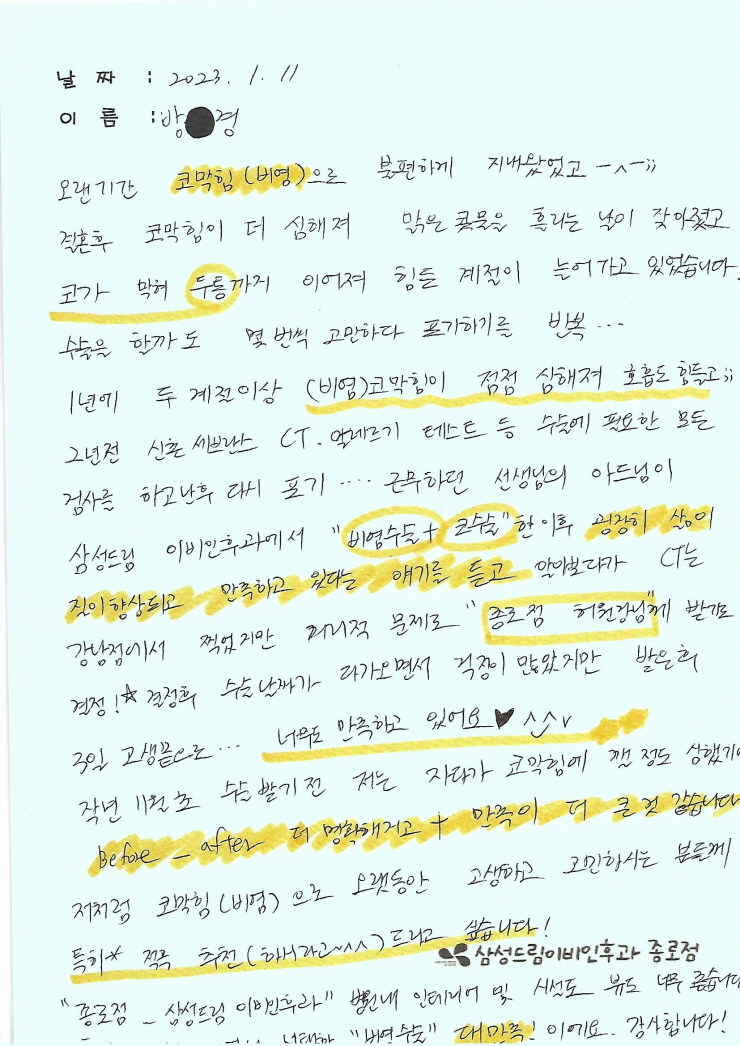 날 짜 : 2023. 1. 11
이 름 : 방 경
오랜기간 코막힘(비염)으로 불편하게 지내왔었고 -^-;;
결혼후 코막힘이 더 심해져 맑은 콧물을 흘리는 날이 잦아졌고
코가 막혀 두통까지 이어져 힘든 계절이 늘어가고 있었습니다.
수술을 할까도 몇 번씩 고민하다 포기하기를 반복...
1년에 두 계절이상 (비염)코막힘이 점점 심해져 호흡도 힘들고;;
2년전 신촌 세브란스 CT. 알레르기 테스트 등 수술에 필요한 모든
검사를 하고난후 다시 포기 .... 근무하던 선생님의 아드님이
삼성드림 이비인후과에서 "비염수술 + 코수술"한 이후 굉장히 삶이
질이향상되고 만족하고 있다는 얘기를 듣고 알아보다가 CT는
강남점에서 찍었지만 거리적 문제로 "종로점 허원장님"께 받기로
결정!☆ 결정후 수술날짜가 다가오면서 걱정이 많았지만 받은후
3일 고생끝으로... 너무도 만족하고 있어요♥ ^^v
작년 11월초 수술받기전 저는 자다가 코막힘에 깰 정도 상했기에
Before _ after 더 명확해지고 + 만족이 더 큰것 같습니다
저처럼 코막힘(비염)으로 오랫동안 고생하고 고민하시는 분들께
특히* 적극 추천(하시라고~^^)드리고 싶습니다!
삼성드림이비인후과 종로점
"종로점 _ 삼성드림 이비인후과" 병원내 인테리어 및 시선도 뷰도 너무 좋습니다
"비염수술" 대만족! 이에요. 감사합니다!